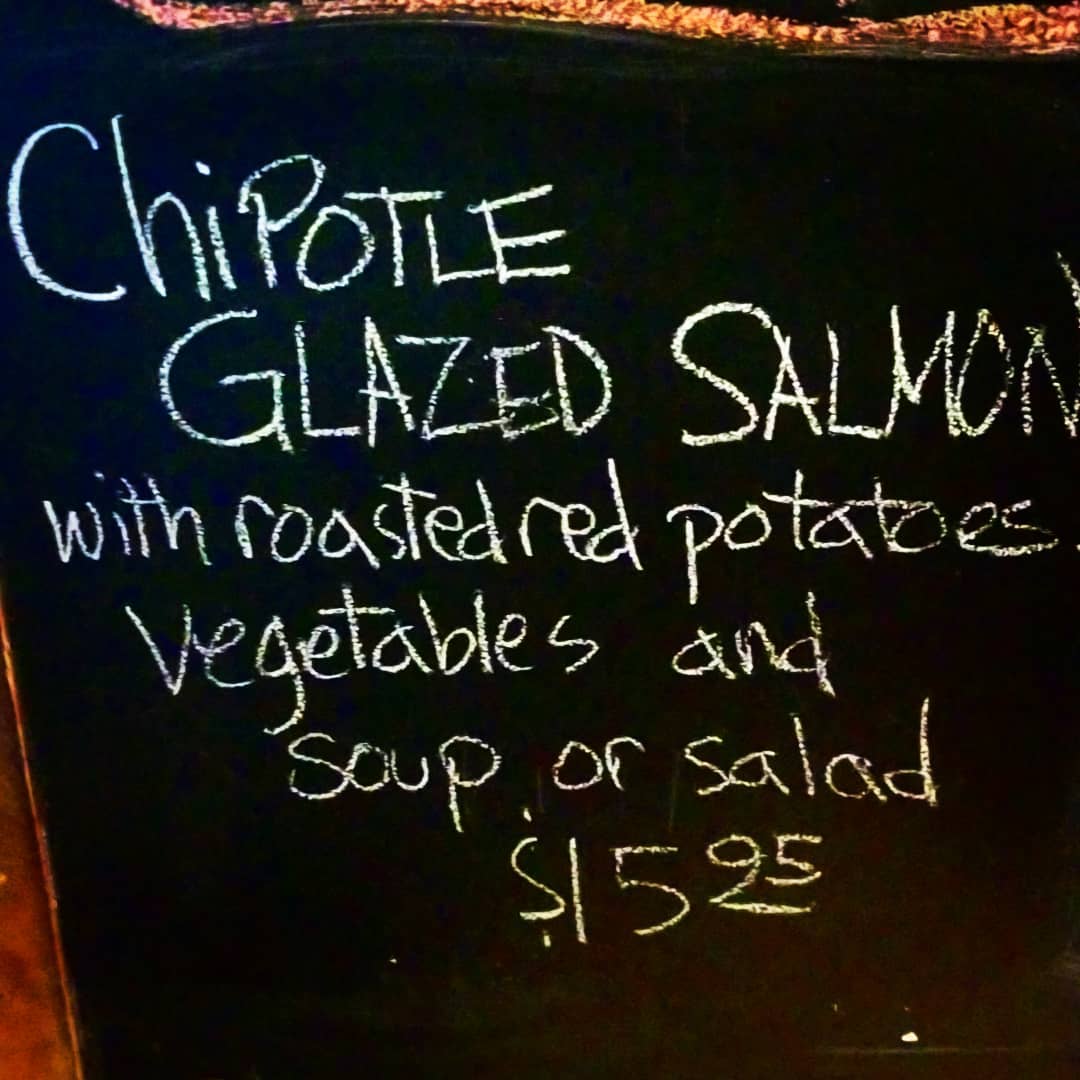 ChiPOTLE
GLAZED SALMON
with roasted red potatoes
Vegetables and
soup or salad
$15 95